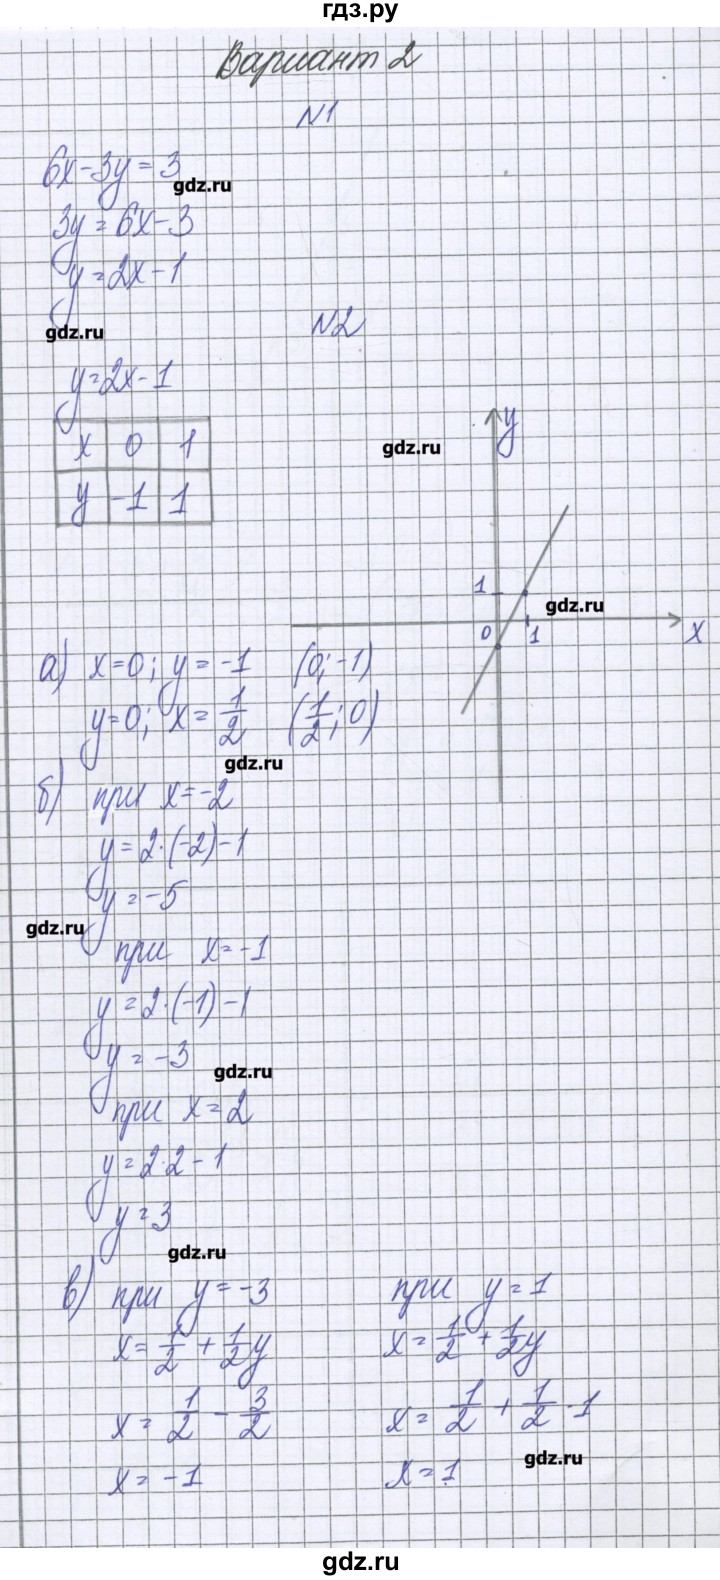 гдз.ру
Вариант 2
N1
6x-3y=3
gdz.ru
3y=6x-3
y=2x-1
gdz.ru
N2
y=2x-1
x 0 1
y -1 1
gdz.ru
y
1
gdz.ru
0 1 x
а) x=0; y=-1 (0;-1)
y=0; x=1/2 (1/2;0)
gdz.ru
б) при x=-2
y=2·(-2)-1
y=-5
gdz.ru
при x=-1
y=2·(-1)-1
y=-3
gdz.ru
при x=2
y=2·2-1
y=3
gdz.ru
в) при y=-3
x=1/2+1/2y
x=1/2-3/2
x=-1
при y=1
x=1/2+1/2y
x=1/2+1/2·1
gdz.ru
x=1
gdz.ru